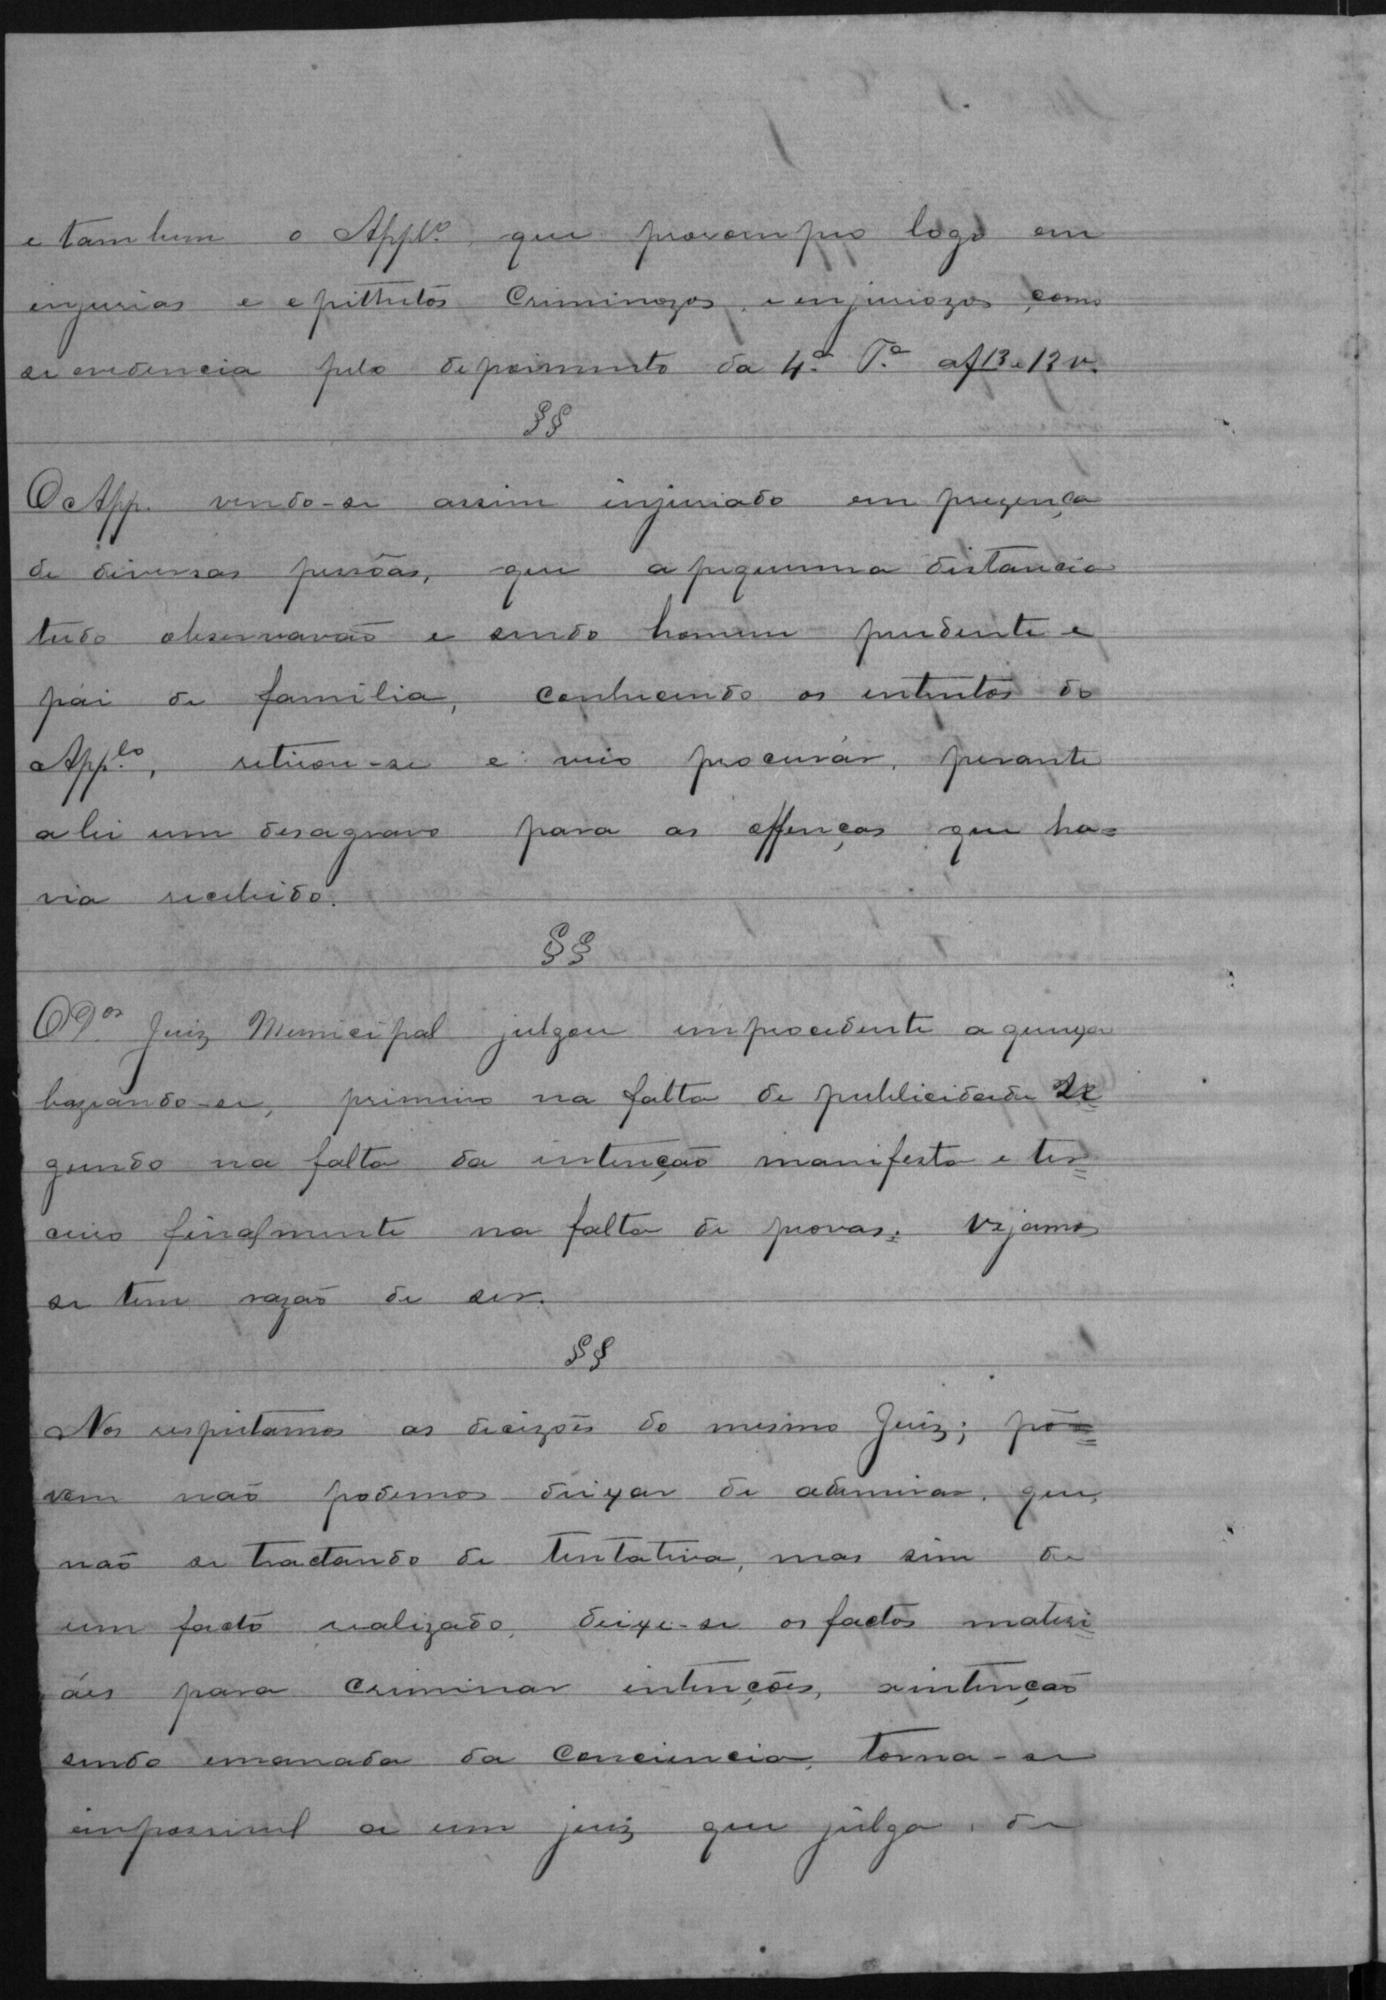 e tambem o Appl.º que prorompeo logo em
injurias e epithetos criminozos e injuriozos como
se evidencia pelo depoimento da 4.ª T.ª af 13 e 13 v.
§§
O App. vendo-se assim injuriado em prezença
de diversas pessôas, que a pequenna distancia
tudo observavaõ e sendo homem prudente e
pai de familia, conhecendo os intentos do
App.do, retirou-se e veio procurár, perante
a lei um desagravo para as offenças que ha=
via recebido.
§§
O Juiz Municipal julgou improcedente a queixa
bazeando-se, primeiro na falta de publicidade Se
gundo na falta da intenção manifesta e ter=
ceiro finalmente na falta de provas. Vejamos
se tem razaõ de ser.
§§
Nos respeitamos as decizões do mesmo Juiz; po=
rem naõ podemos deixar de admirar, que,
naõ se tractando de tentativa, mas sim de
um facto realizado, deixe-se os factos materi=
áes para criminar intenções, a intençaõ
sendo emanada da conciencia, torna-se
impossivel a um juiz que julga, de